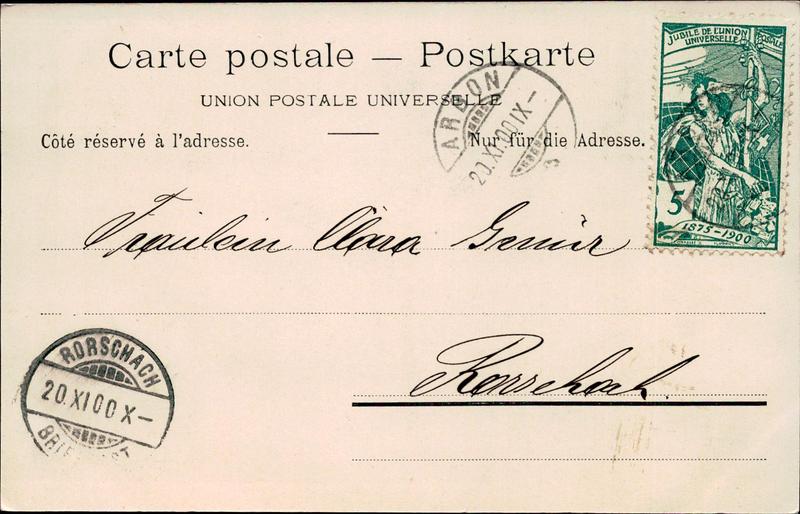 Carte postale — Postkarte
UNION POSTALE UNIVERSELLE
Côté réservé à l'adresse.
Nur für die Adresse.
JUBILÉ DE L'UNION
POSTALE
UNIVERSELLE
5
1875-1900
ARBON
20.XI.00.IX-
Fräulein Clara
Rorschach
RORSCHACH
20.XI.00.X-